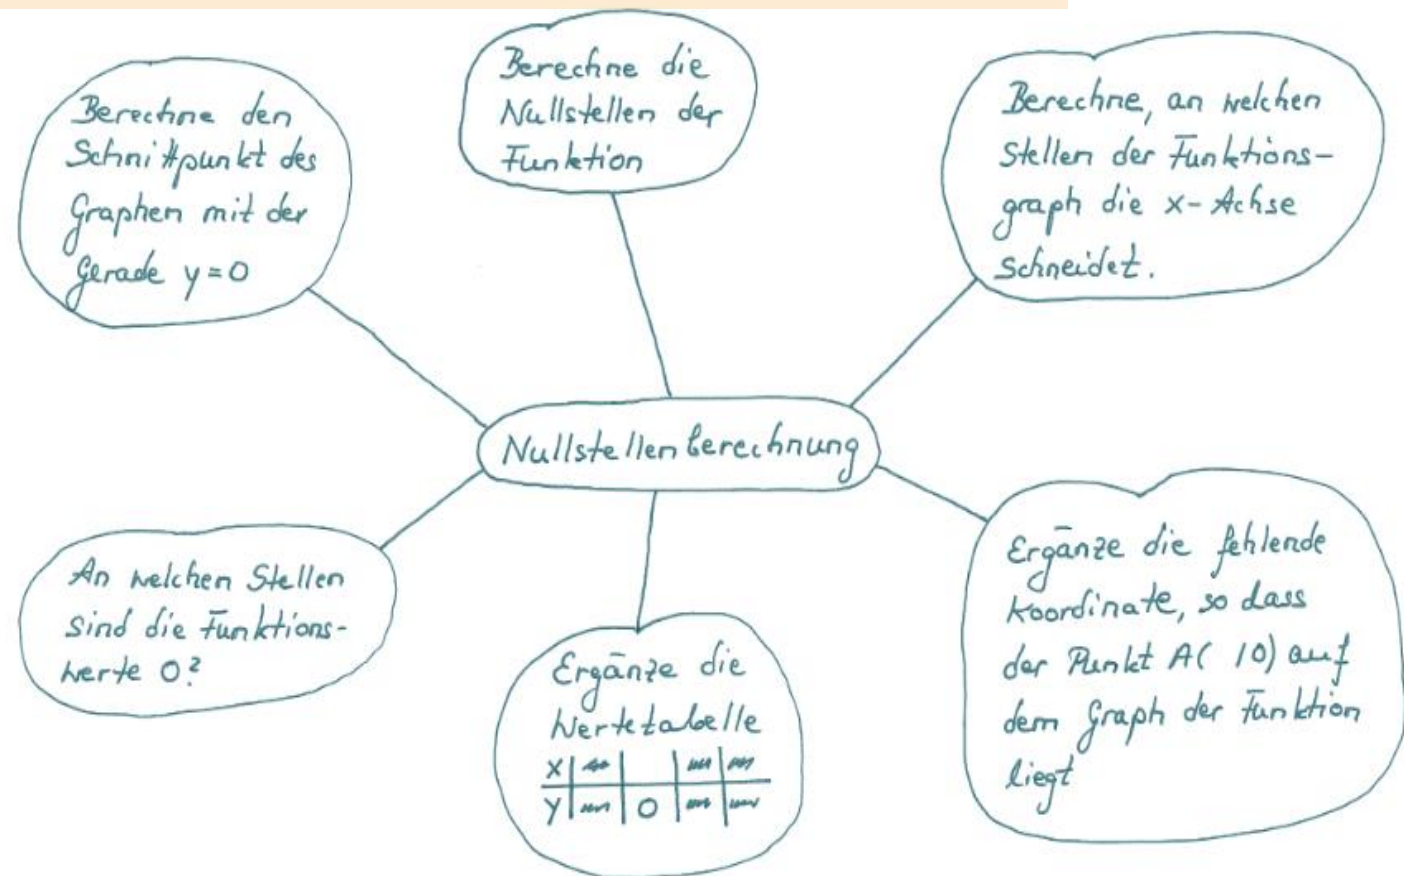 Berechne den
Schnittpunkt des
Graphen mit der
Gerade y=0
Berechne die
Nullstellen der
Funktion
Berechne, an welchen
Stellen der Funktions-
graph die x-Achse
schneidet.
Nullstellenberechnung
An welchen Stellen
sind die Funktions-
werte 0?
Ergänze die
Wertetabelle
X
Y 0
Ergänze die fehlende
Koordinate, so dass
der Punkt A( /0) auf
dem Graph der Funktion
liegt